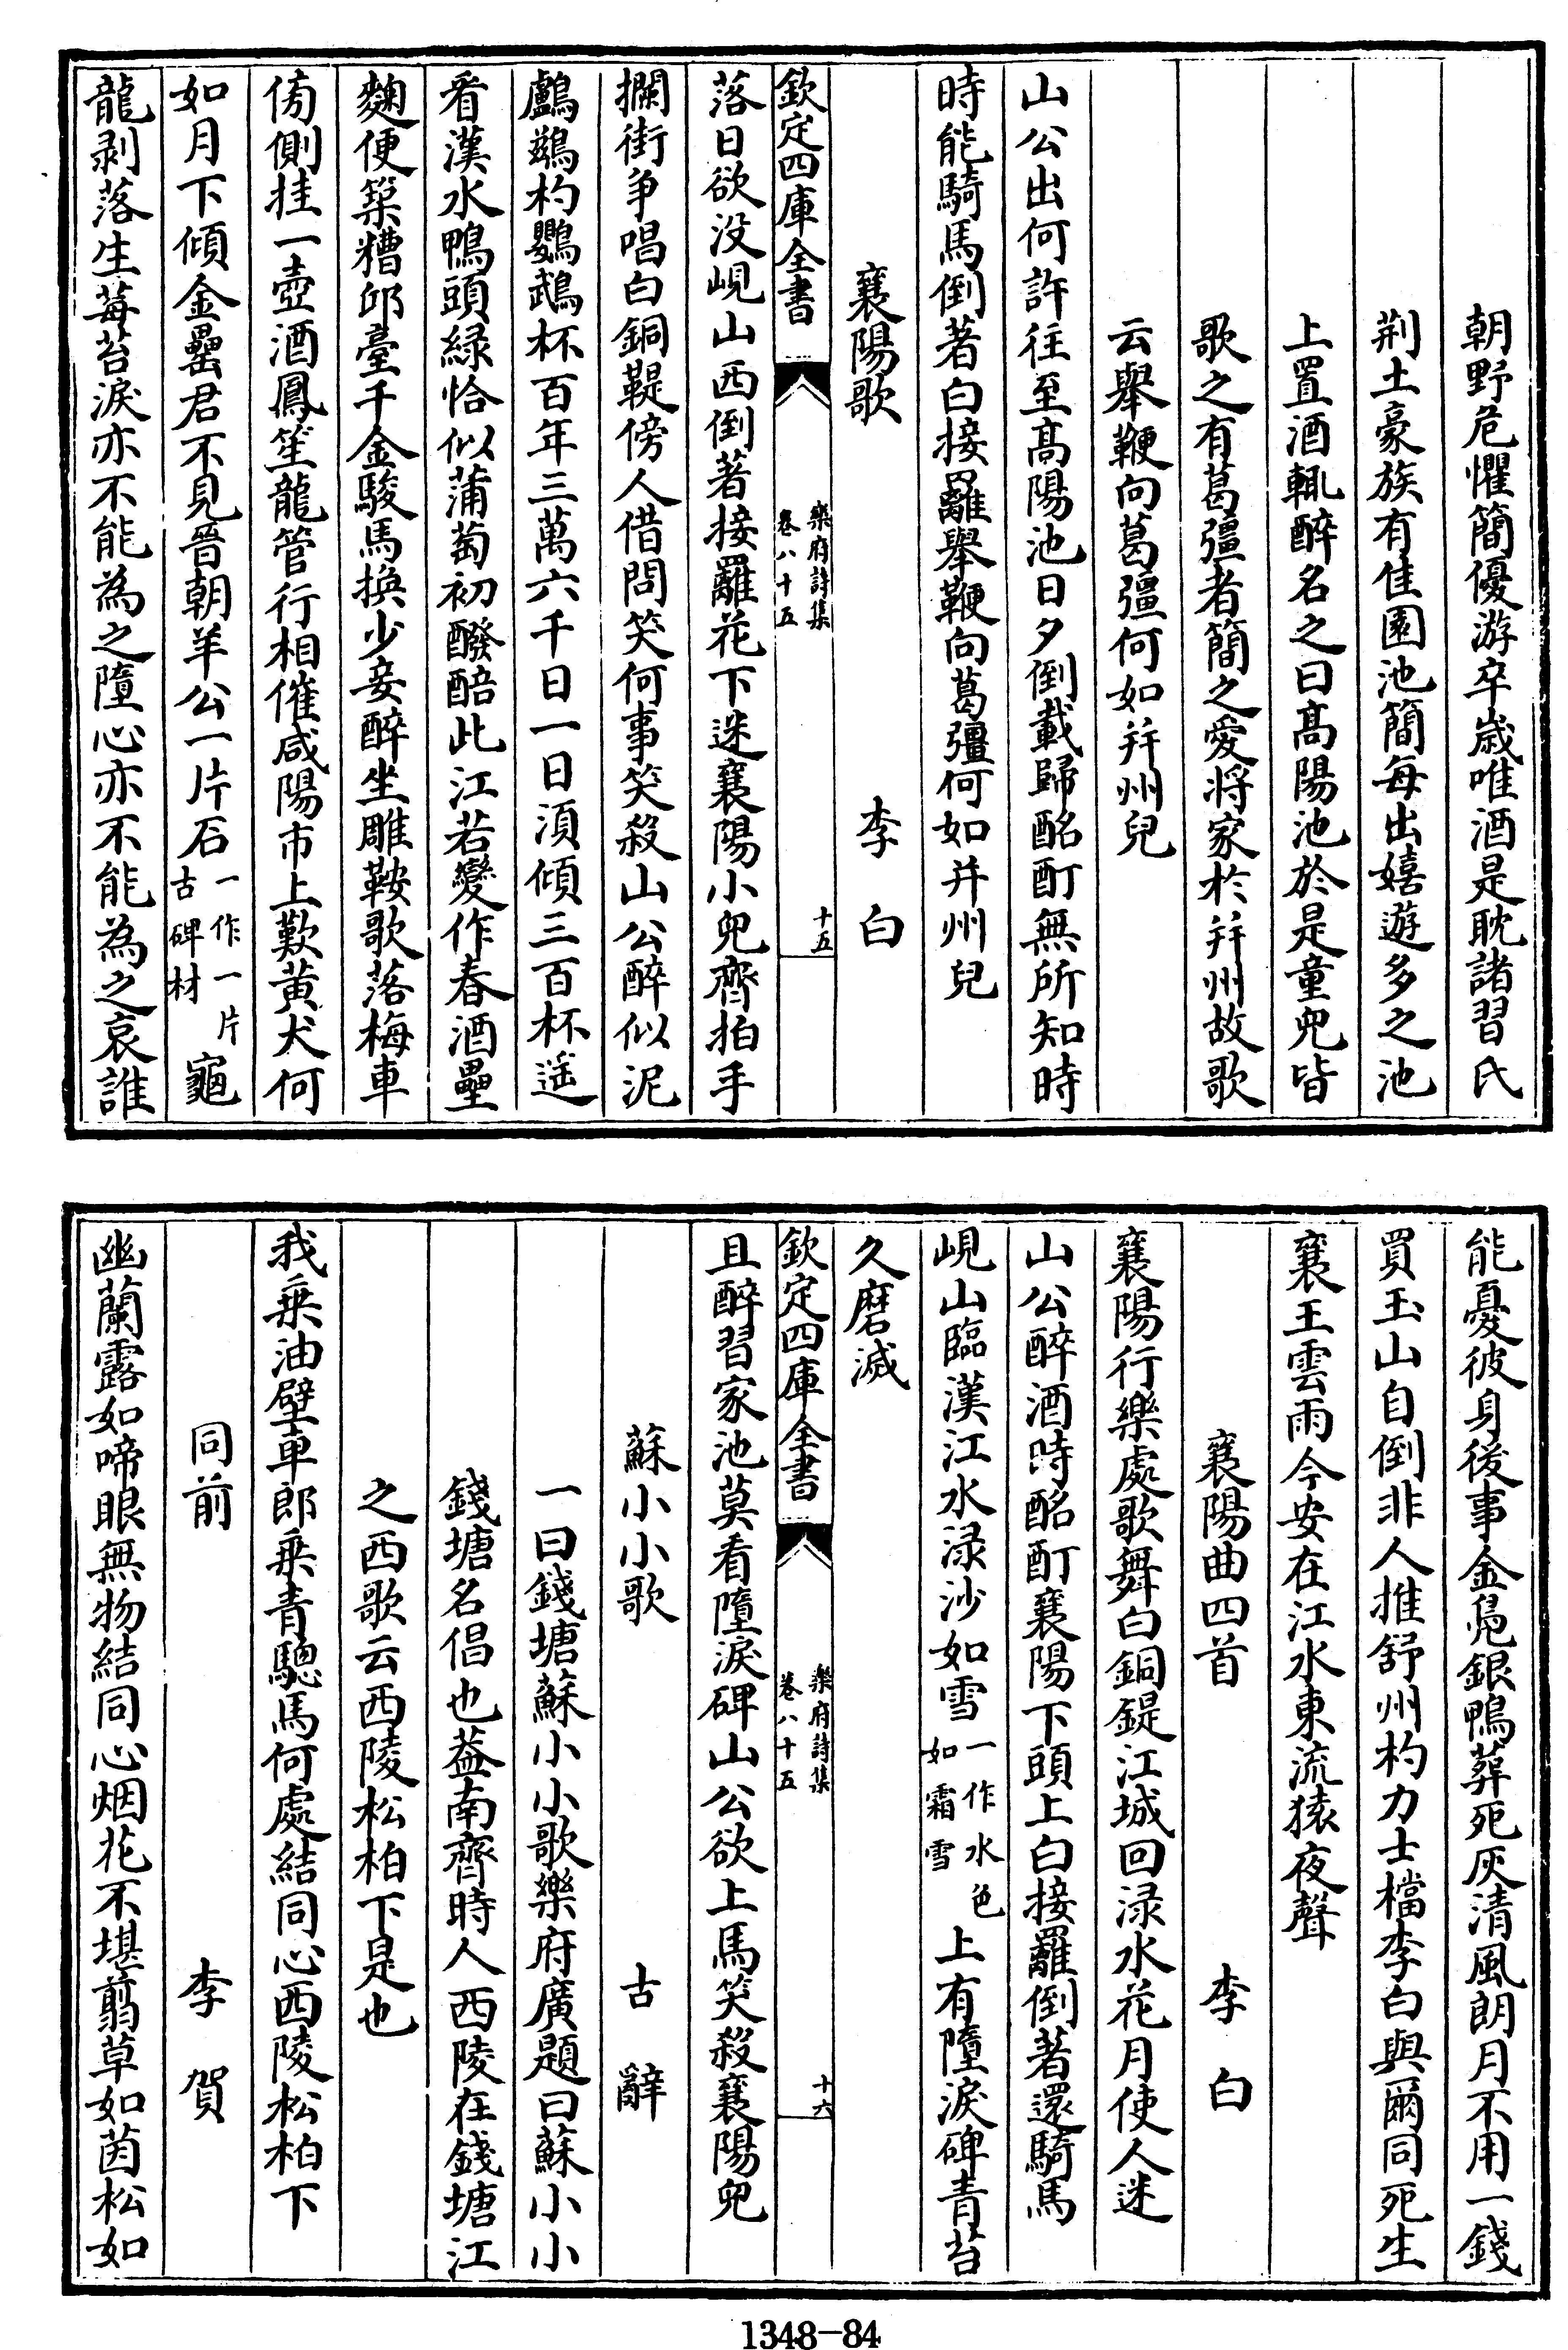 朝野危懼簡優游卒歲唯酒是耽諸習氏
荆土豪族有佳園池簡每出嬉遊多之池
上置酒輒醉名之曰髙陽池於是童兒皆
歌之有葛彊者簡之愛將家於并州故歌
云舉鞭向葛彊何如并州兒
山公出何許往至髙陽池日夕倒載歸酩酊無所知時
時能騎馬倒著白接䍦舉鞭向葛彊何如并州兒
襄陽歌 李白
欽定四庫全書 樂府詩集 卷八十五 十五
落日欲没峴山西倒著接䍦花下迷襄陽小兒齊拍手
攔街爭唱白銅鞮傍人借問笑何事笑殺山公醉似泥
鸕鷀杓鸚鵡杯百年三萬六千日一日須傾三百杯遥
看漢水鴨頭緑恰似蒲萄初醱醅此江若變作春酒壘
麴便築糟邱臺千金駿馬換少妾醉坐雕鞍歌落梅車
傍側挂一壺酒鳳笙龍管行相催咸陽市上歎黄犬何
如月下傾金罍君不見晉朝羊公一片石一作一片古碑材龜
龍剥落生莓苔淚亦不能為之墮心亦不能為之哀誰
能憂彼身後事金鳬銀鴨葬死灰清風朗月不用一錢
買玉山自倒非人推舒州杓力士檔李白與爾同死生
襄王雲雨今安在江水東流猿夜聲
襄陽曲四首 李白
襄陽行樂處歌舞白銅鍉江城回渌水花月使人迷
山公醉酒時酩酊襄陽下頭上白接䍦倒著還騎馬
峴山臨漢江水渌沙如雪一作水色如霜雪上有墮淚碑青苔
久磨滅
欽定四庫全書 樂府詩集 卷八十五 十六
且醉習家池莫看墮淚碑山公欲上馬笑殺襄陽兒
蘇小小歌 古辭
一曰錢塘蘇小小歌樂府廣題曰蘇小小
錢塘名倡也葢南齊時人西陵在錢塘江
之西歌云西陵松柏下是也
我乗油壁車郎乗青驄馬何處結同心西陵松柏下
同前 李賀
幽蘭露如啼眼無物結同心烟花不堪翦草如茵松如
1348-84